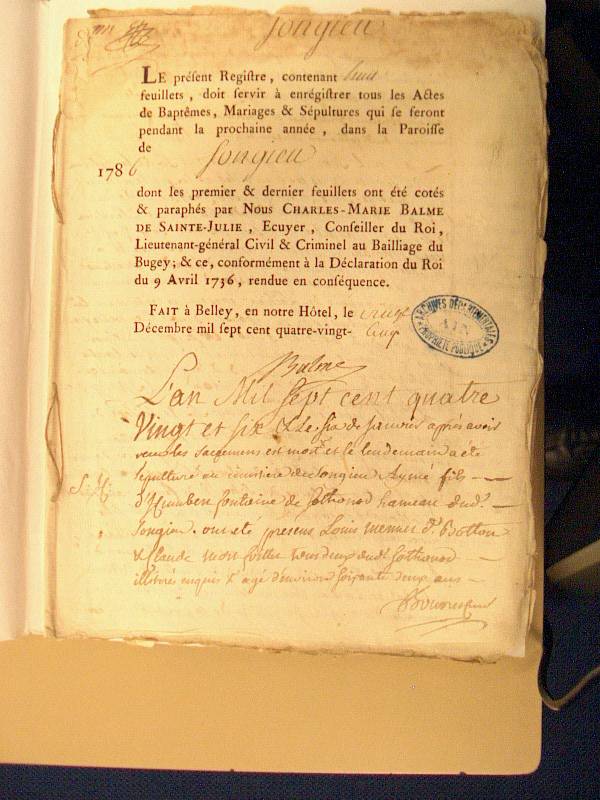 Songieu
LE préſent Regiſtre, contenant huit
feuillets, doit ſervir à enrégiſtrer tous les Actes
de Baptêmes, Mariages & Sépultures qui ſe feront
pendant la prochaine année, dans la Paroiſſe
de Songieu
1786
dont les premier & dernier feuillets ont été cotés
& paraphés par Nous CHARLES-MARIE BALME
DE SAINTE-JULIE, Ecuyer, Conſeiller du Roi,
Lieutenant-général Civil & Criminel au Bailliage du
Bugey; & ce, conformément à la Déclaration du Roi
du 9 Avril 1736, rendue en conſéquence.
FAIT à Belley, en notre Hôtel, le
Décembre mil ſept cent quatre-vingt- cinq
ARCHIVES DÉPARTEMENTALES
AIN
PROPRIÉTÉ PUBLIQUE
Balme
L'an Mil Sept cent quatre
Vingt et six & le six de janvier après avoir
reçu les sacremens est mort et le lendemain a été
sépulturé au cimetière de Songieu Aymé fils
d'Humbert fontaine de Sothonod hameau dud.
Songieu. ont été présens Louis
& Claude tous deux dud. Sothonod
illitérés enquis & agé d'environ soixante deux ans